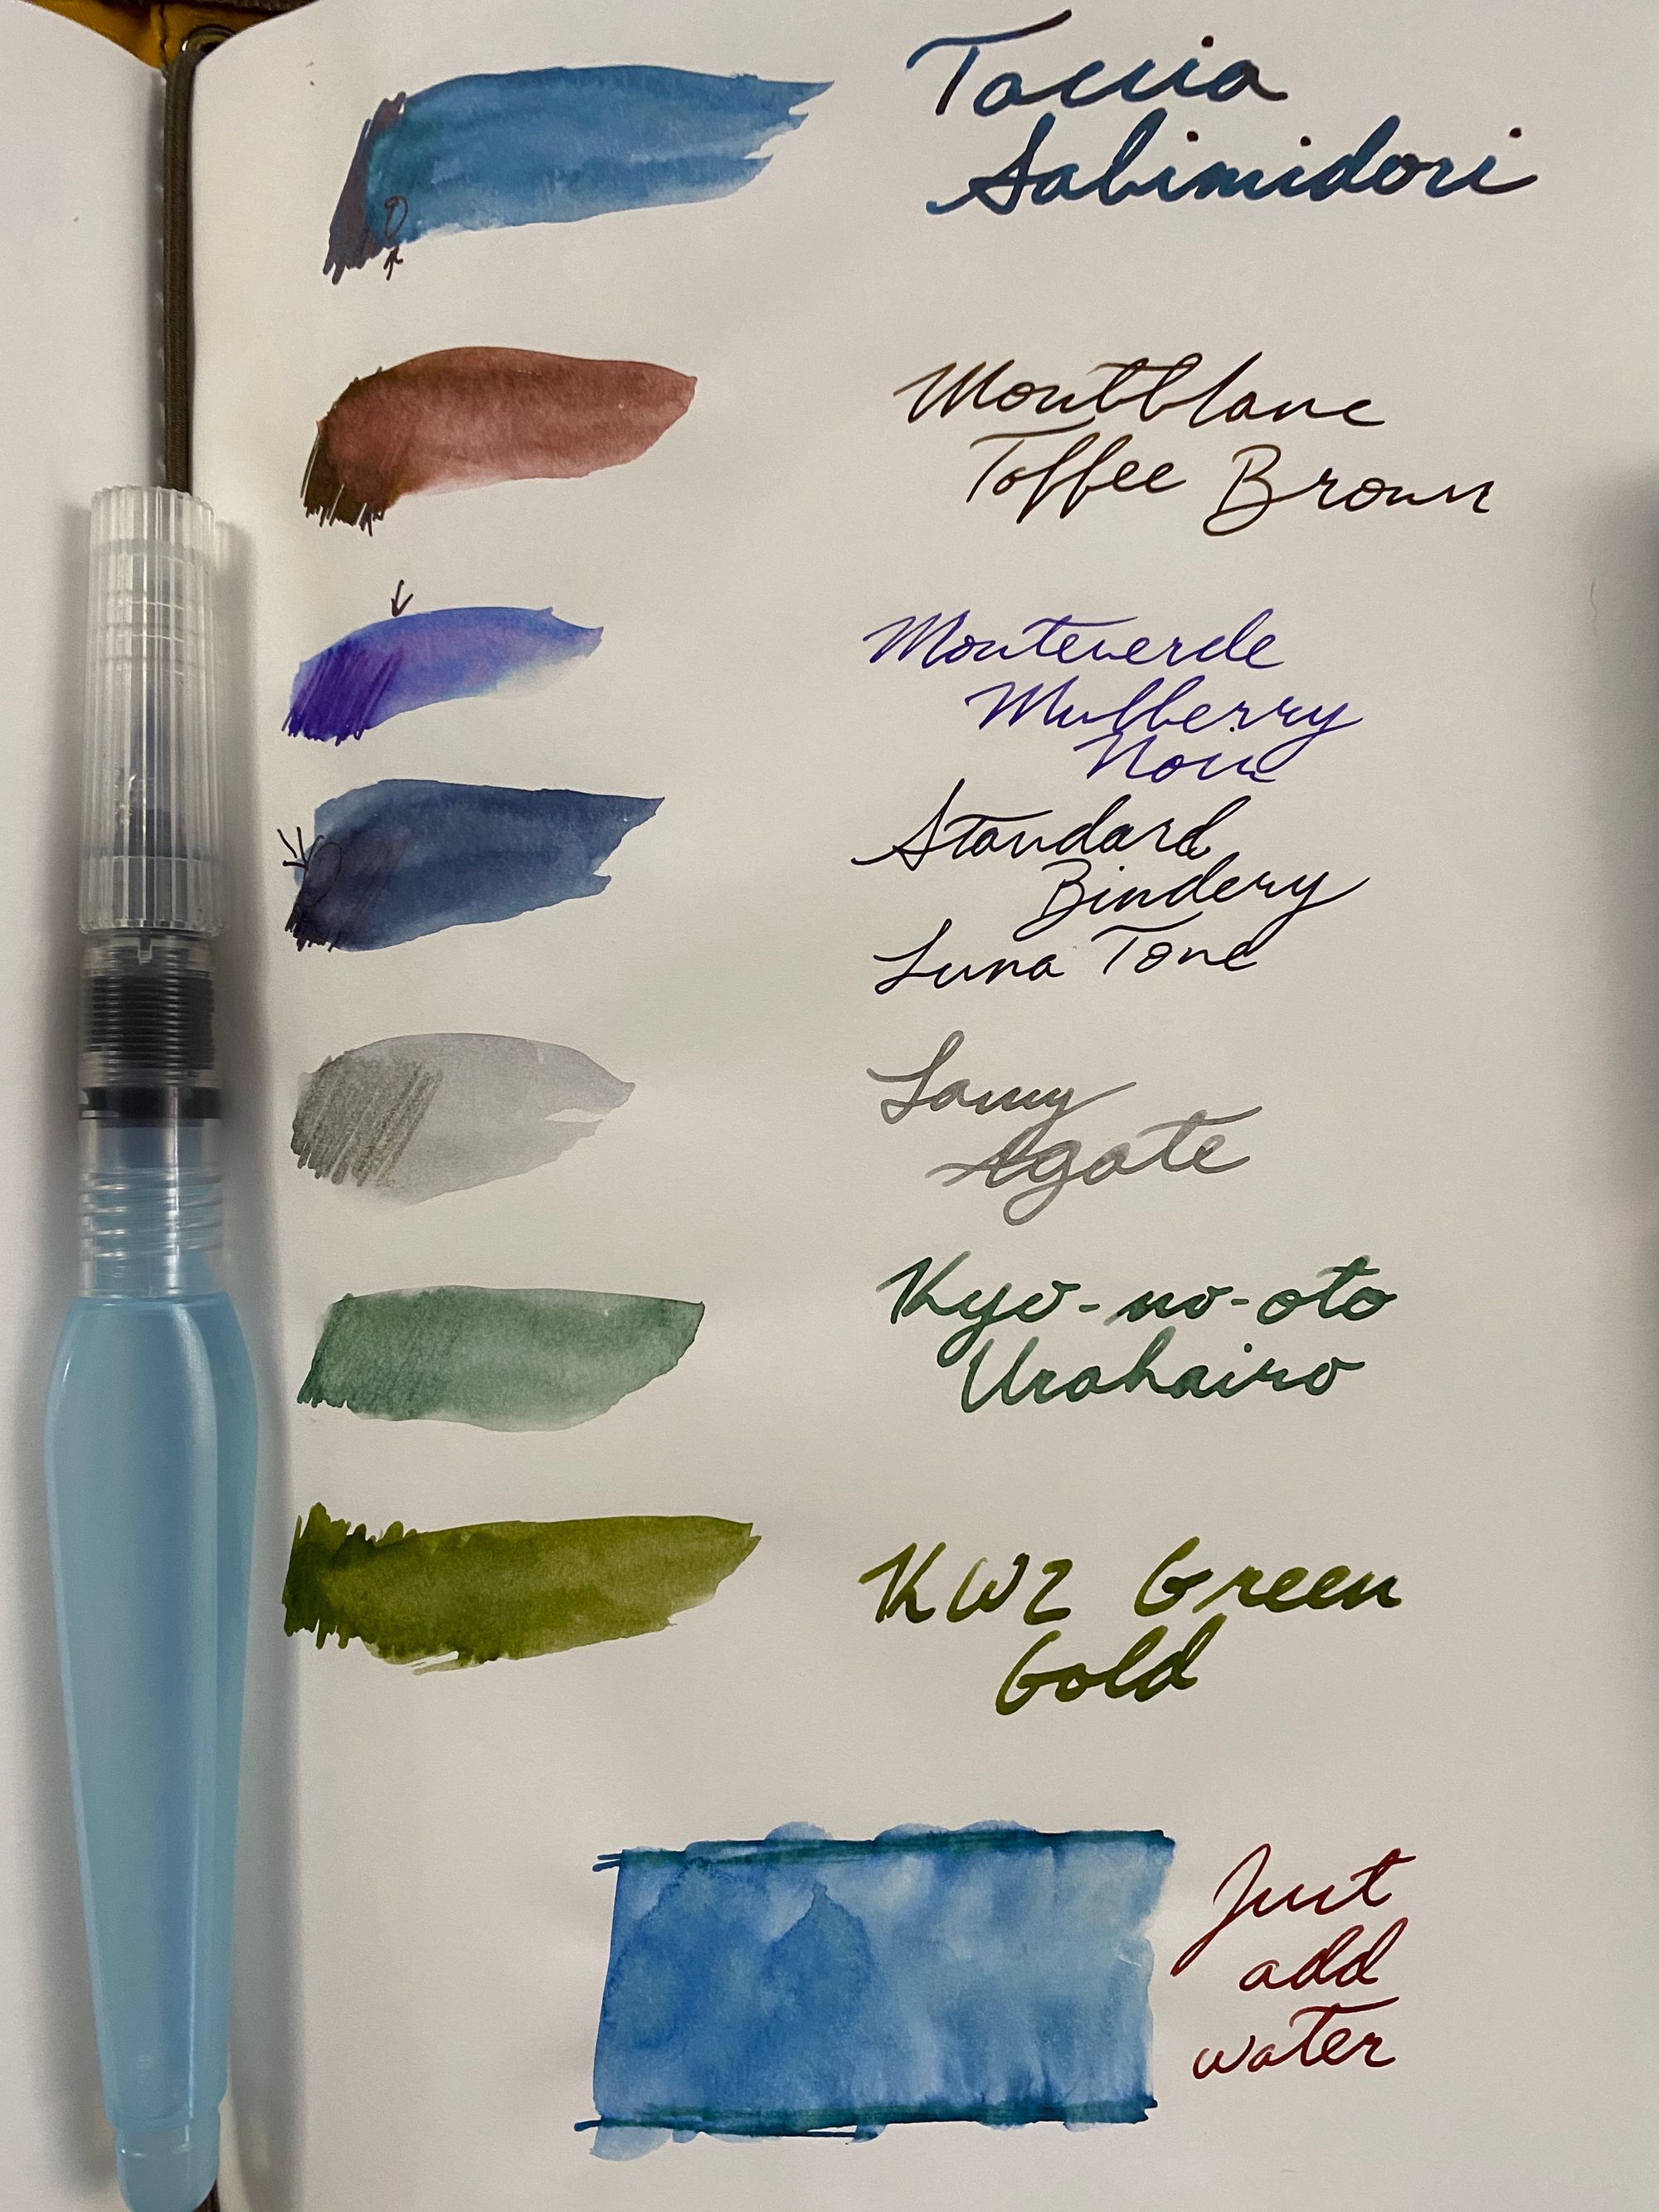 Taccia
Sabimidori
Montblanc
Toffee Brown
Monteverde
Mulberry
Noir
Standard
Bindery
Luna Tone
Lamy
Agate
Kyo-no-oto
Urahairo
KWZ Green
Gold
Just
add
water